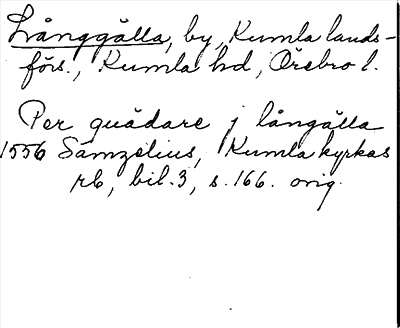 Långgälla, by, Kumla lands-
förs., Kumla hd, Örebro l.
Per quädare j långälla
1556 Samzelius, Kumla kyrkas
rb, bil. 3, s. 166. orig.